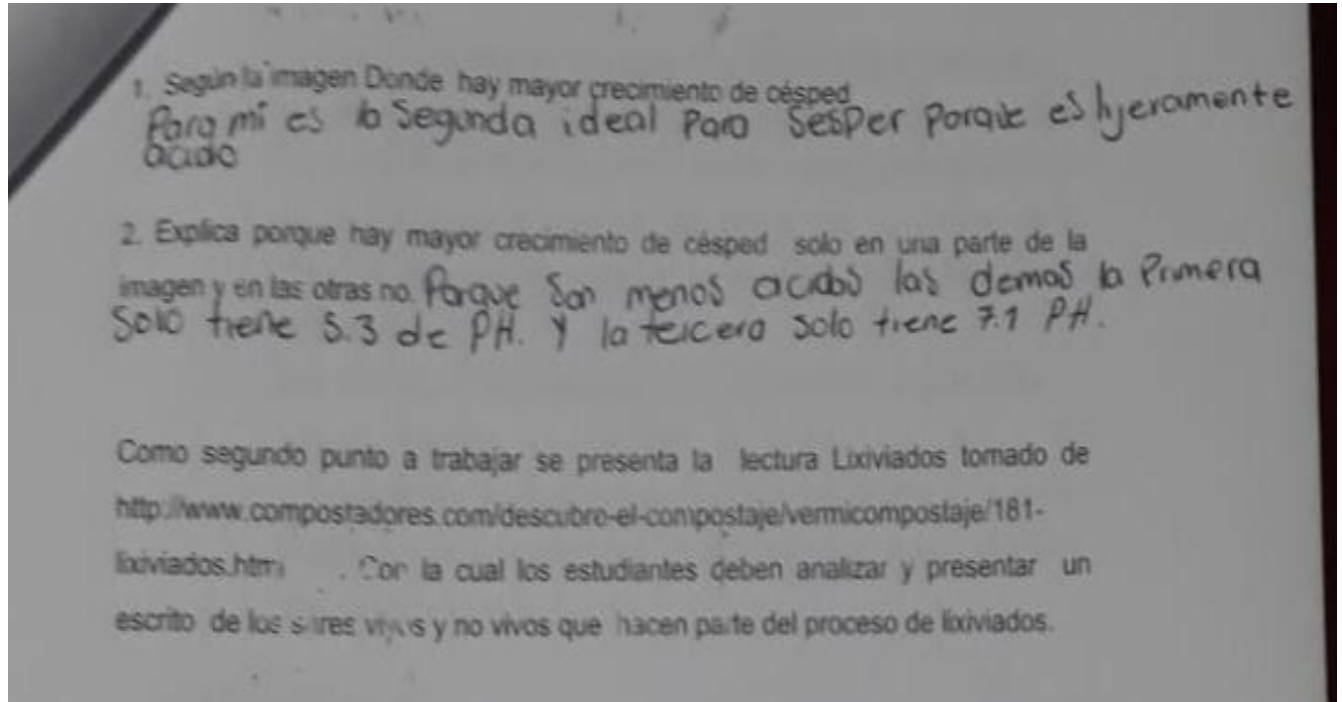 1. Según la imagen Donde hay mayor crecimiento de césped
Para mí es la Segunda ideal Para SesPer Porque es lijeramente
acido
2. Explica porque hay mayor crecimiento de césped solo en una parte de la
imagen y en las otras no. Porque Son menos acidos las demas la Primera
Solo tiene 5.3 de PH. Y la tercera solo tiene 7.1 PH.
Como segundo punto a trabajar se presenta la lectura Lixiviados tomado de
http://www.compostadores.com/descubro-el-compostaje/vermicompostaje/181-
lixiviados.html . Con la cual los estudiantes deben analizar y presentar un
escrito de los seres vivos y no vivos que hacen parte del proceso de lixiviados.